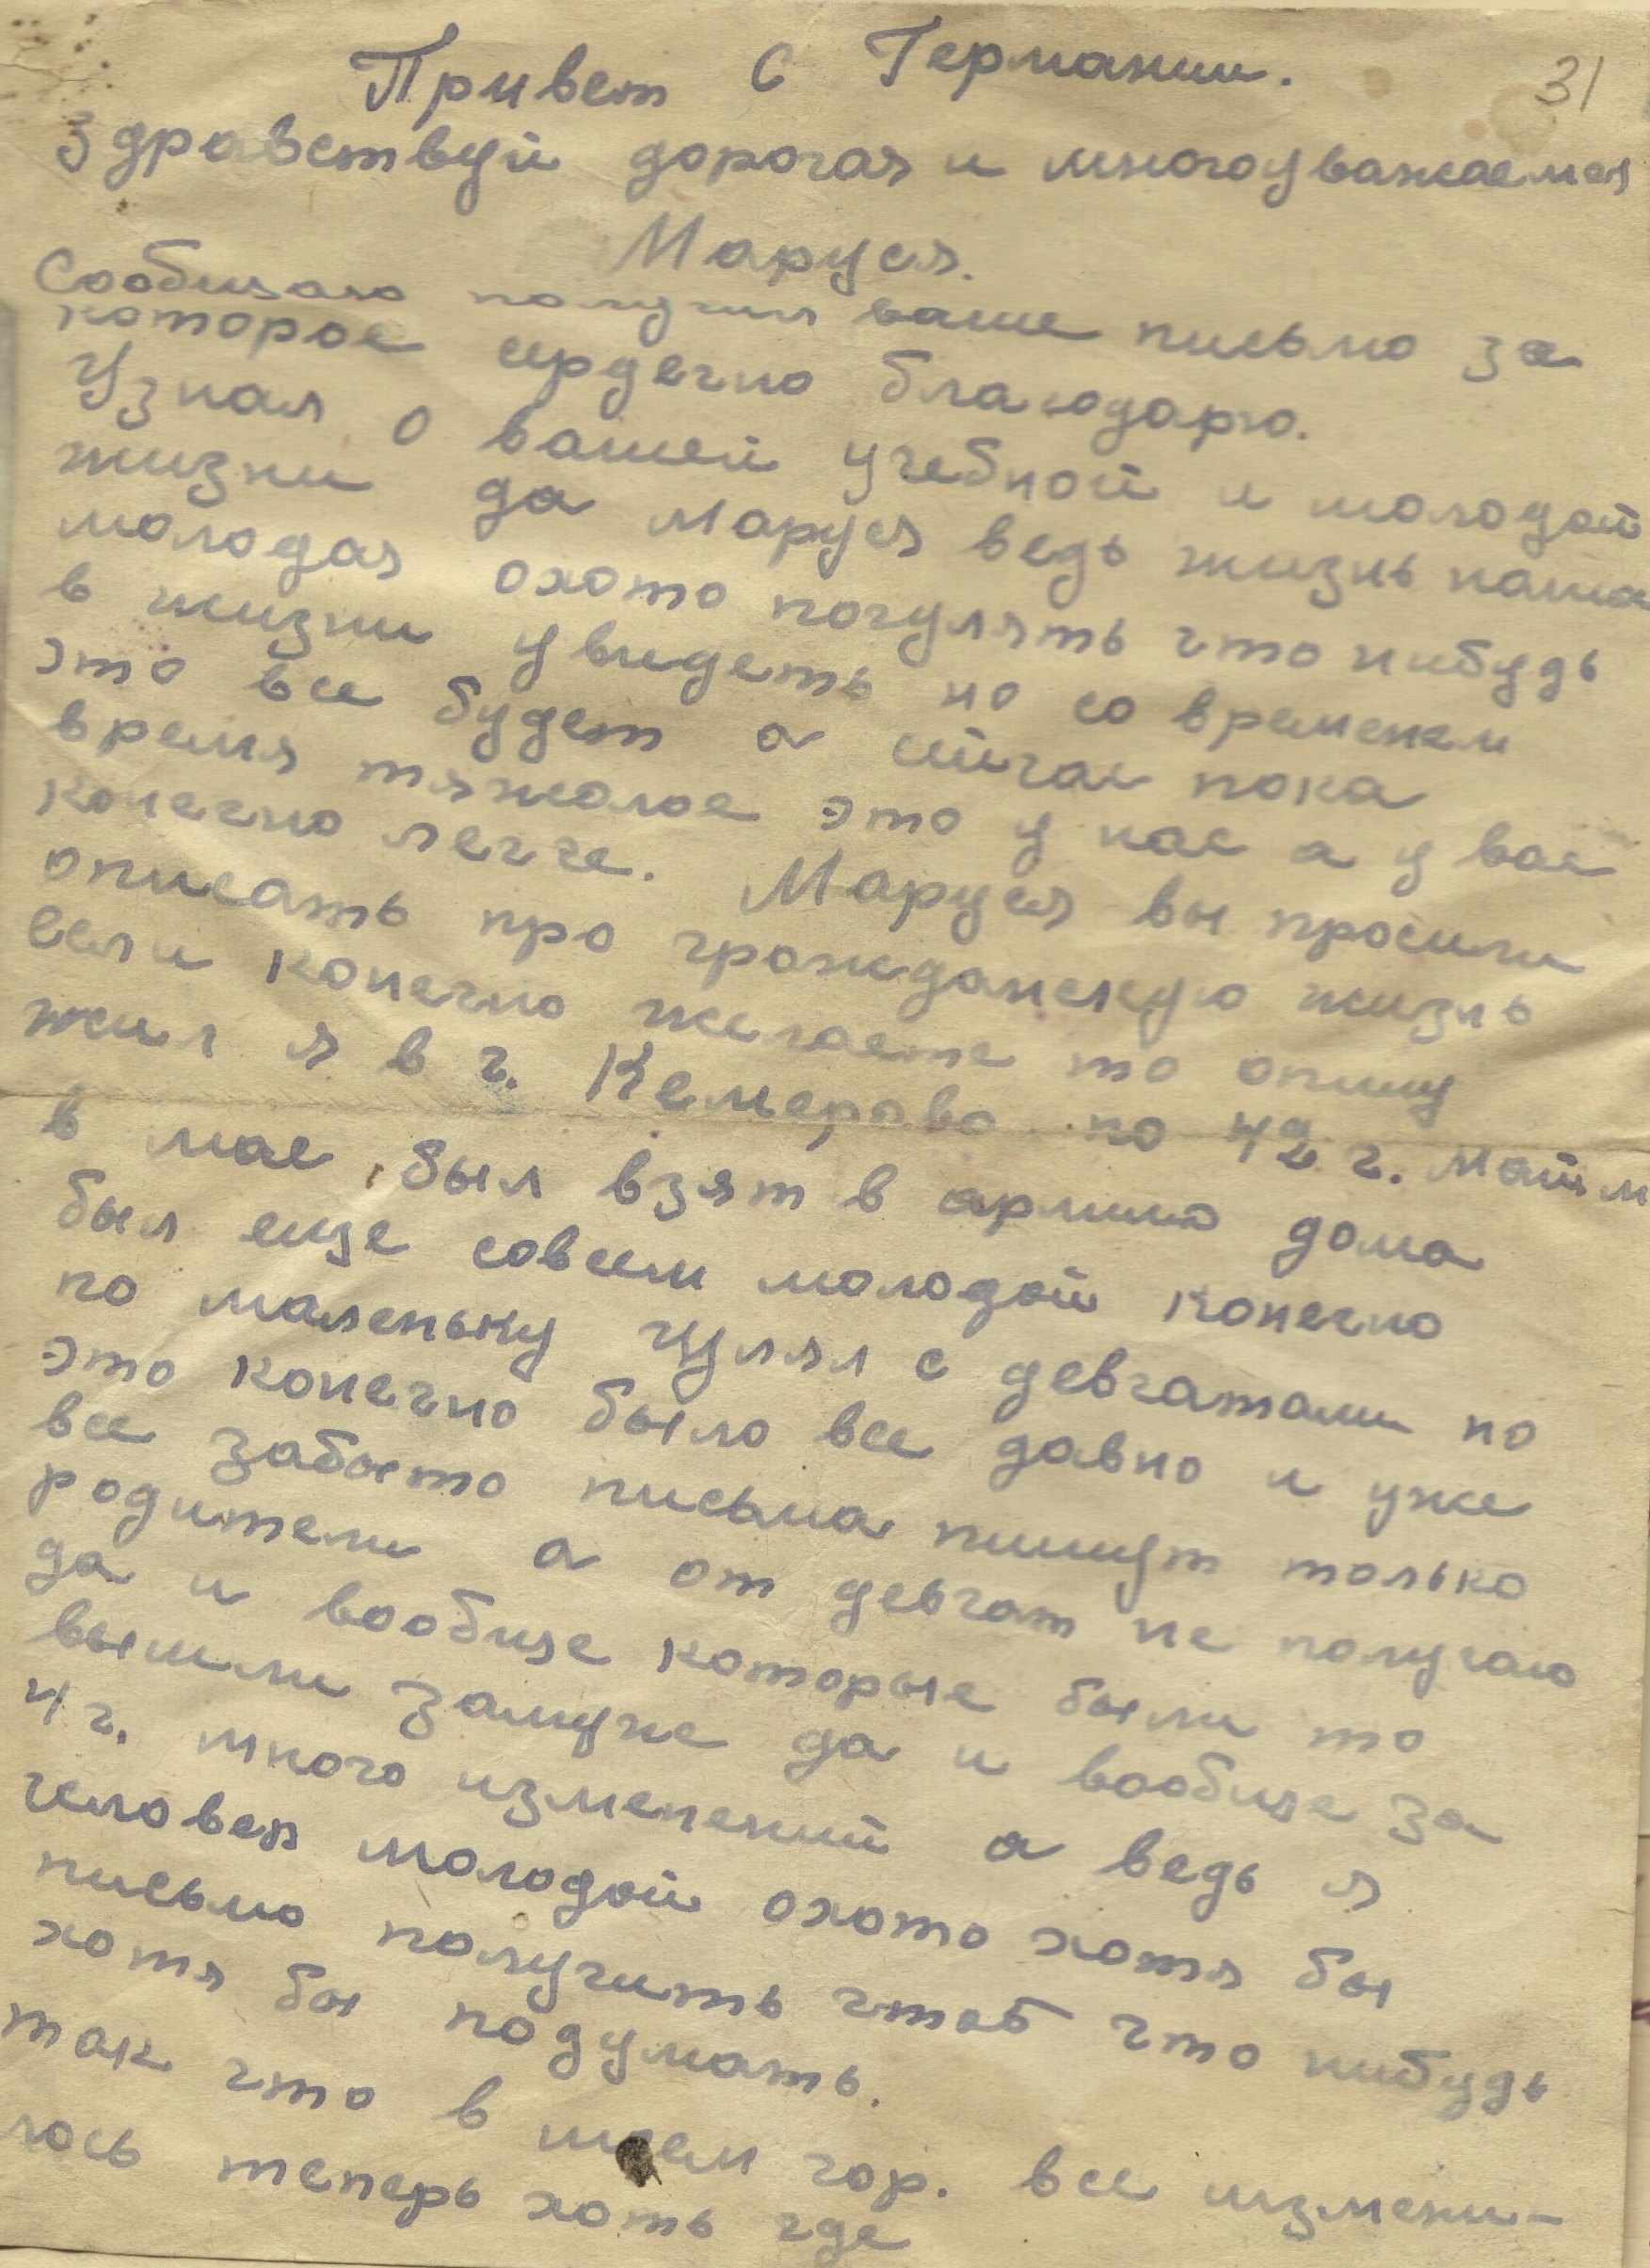 31
Привет с Германии.
Здравствуй дорогая и многоуважаемая
Маруся.
Сообщаю получил ваше письмо за
которое сердечно благодарю.
Узнал о вашей учебной и молодой
жизни да Маруся ведь жизнь наша
молодая охото погулять что нибудь
в жизни увидеть но со временем
это все будет а сейчас пока
время тяжолое это у нас а у вас
конечно легче. Маруся вы просили
описать про гражданскую жизнь
если конечно желаете то опишу
жил я в г. Кемерово по 42 г.
в мае был взят в армию дома
был еще совсем молодой конечно
по маленьку гулял с девчатами но
это конечно было все давно и уже
все забыто письма пишут только
родители а от девчат не получаю
да и вообще которые были то
вышли замуже да и вообще за
4 г. много изменений а ведь я
человек молодой охото хотя бы
письмо получить чтоб что нибудь
хотя бы подумать.
так что в гор. все измени-
лось теперь хоть где